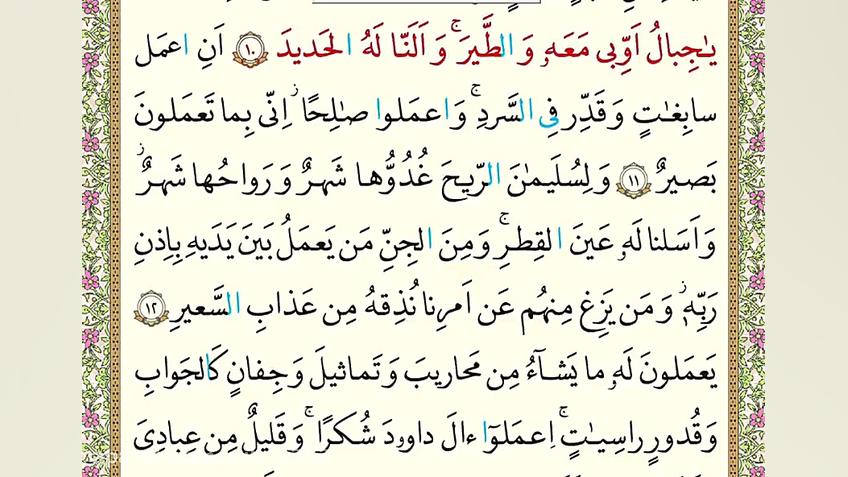 يٰجِبالُ اَوِّبى مَعَهٗ وَ الطَّيرَ ۚ وَ اَلَنّا لَهُ الحَديدَ ۝١٠ اَنِ اعمَل
سابِغٰتٍ وَ قَدِّر فِى السَّردِ ۚ وَ اعمَلوا صٰلِحًا ۖ اِنّى بِما تَعمَلونَ
بَصيرٌ ۝١١ وَ لِسُلَيمٰنَ الرّيحَ غُدُوُّها شَهرٌ وَ رَواحُها شَهرٌ ۖ
وَ اَسَلنا لَهٗ عَينَ القِطرِ ۚ وَ مِنَ الجِنِّ مَن يَعمَلُ بَينَ يَدَيهِ بِاِذنِ
رَبِّهٖ ۖ وَ مَن يَزِغ مِنهُم عَن اَمرِنا نُذِقهُ مِن عَذابِ السَّعيرِ ۝١٢
يَعمَلونَ لَهٗ ما يَشآءُ مِن مَحاريبَ وَ تَماثيلَ وَ جِفانٍ كَالجَوابِ
وَ قُدورٍ راسِيٰتٍ ۚ اِعمَلوٓا ءالَ داوودَ شُكرًا ۚ وَ قَليلٌ مِن عِبادِىَ